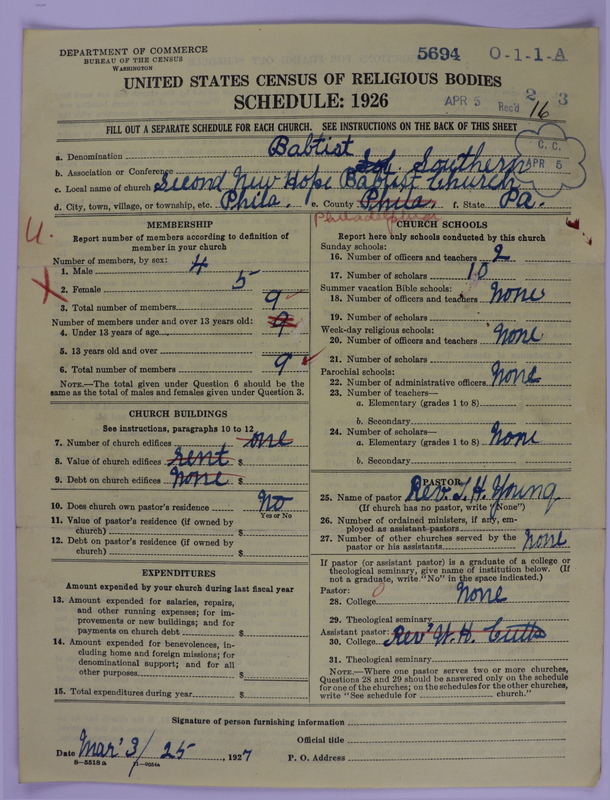 DEPARTMENT OF COMMERCE
BUREAU OF THE CENSUS
WASHINGTON
5694 O-1-1-A
UNITED STATES CENSUS OF RELIGIOUS BODIES
SCHEDULE: 1926
APR 5 Rec'd 16 2 3
FILL OUT A SEPARATE SCHEDULE FOR EACH CHURCH. SEE INSTRUCTIONS ON THE BACK OF THIS SHEET
C. C.
APR 5
a. Denomination Babtist
b. Association or Conference Southern
c. Local name of church Second New Hope Babtist Church
d. City, town, village, or township, etc. Phila. e. County Phila. f. State Pa.
Philadelphia
U.
X
MEMBERSHIP
Report number of members according to definition of member in your church
Number of members, by sex:
1. Male 4
2. Female 5
3. Total number of members 9
Number of members under and over 13 years old: 9
4. Under 13 years of age
5. 13 years old and over
6. Total number of members 9
NOTE.—The total given under Question 6 should be the same as the total of males and females given under Question 3.
CHURCH BUILDINGS
See instructions, paragraphs 10 to 12
7. Number of church edifices one
8. Value of church edifices rent $
9. Debt on church edifices none $
10. Does church own pastor's residence No
Yes or No
11. Value of pastor's residence (if owned by church) $
12. Debt on pastor's residence (if owned by church) $
EXPENDITURES
Amount expended by your church during last fiscal year
13. Amount expended for salaries, repairs, and other running expenses; for improvements or new buildings; and for payments on church debt $
14. Amount expended for benevolences, including home and foreign missions; for denominational support; and for all other purposes $
15. Total expenditures during year $
CHURCH SCHOOLS
Report here only schools conducted by this church
Sunday schools:
16. Number of officers and teachers 2
17. Number of scholars 10
Summer vacation Bible schools:
18. Number of officers and teachers none
19. Number of scholars
Week-day religious schools:
20. Number of officers and teachers none
21. Number of scholars
Parochial schools:
22. Number of administrative officers none
23. Number of teachers—
a. Elementary (grades 1 to 8)
b. Secondary
24. Number of scholars—
a. Elementary (grades 1 to 8) none
b. Secondary
PASTOR
25. Name of pastor Rev. J. H. Young
(If church has no pastor, write "None")
26. Number of ordained ministers, if any, employed as assistant pastors
27. Number of other churches served by the pastor or his assistants none
If pastor (or assistant pastor) is a graduate of a college or theological seminary, give name of institution below. (If not a graduate, write "No" in the space indicated.)
Pastor:
28. College none
29. Theological seminary
Assistant pastor:
30. College Rev W. H. Cutts
31. Theological seminary
NOTE.—Where one pastor serves two or more churches, Questions 28 and 29 should be answered only on the schedule for one of the churches; on the schedules for the other churches, write "See schedule for church."
Signature of person furnishing information
Official title
Date Mar' 3/25, 1927 P. O. Address
8—5518a 11—9054a